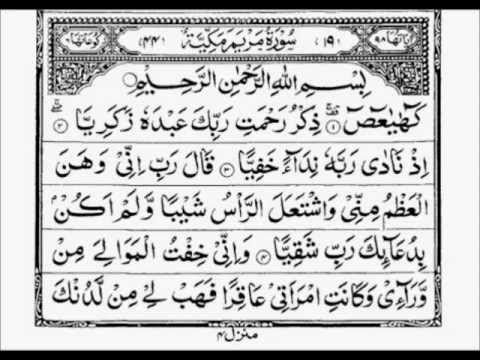 اٰيَاتُهَا ٩٨ (١٩) سُوْرَةُ مَرْيَمَ مَكِّيَّةٌ (٤٤) رُكُوْعَاتُهَا ٦
بِسْمِ اللّٰهِ الرَّحْمٰنِ الرَّحِيْمِ
كٓهٰيٰعٓصٓ ۚ‏ ١ ذِكْرُ رَحْمَتِ رَبِّكَ عَبْدَهٗ زَكَرِيَّا ۖ ٢
اِذْ نَادٰى رَبَّهٗ نِدَآءً خَفِيًّا ٣ قَالَ رَبِّ اِنِّىْ وَهَنَ
الْعَظْمُ مِنِّىْ وَاشْتَعَلَ الرَّاْسُ شَيْبًا وَّلَمْ اَكُنْۢ
بِدُعَآئِكَ رَبِّ شَقِيًّا ٤ وَاِنِّىْ خِفْتُ الْمَوَالِىَ مِنْ
وَّرَآءِىْ وَكَانَتِ امْرَاَتِىْ عَاقِرًا فَهَبْ لِىْ مِنْ لَّدُنْكَ
منزل ٤